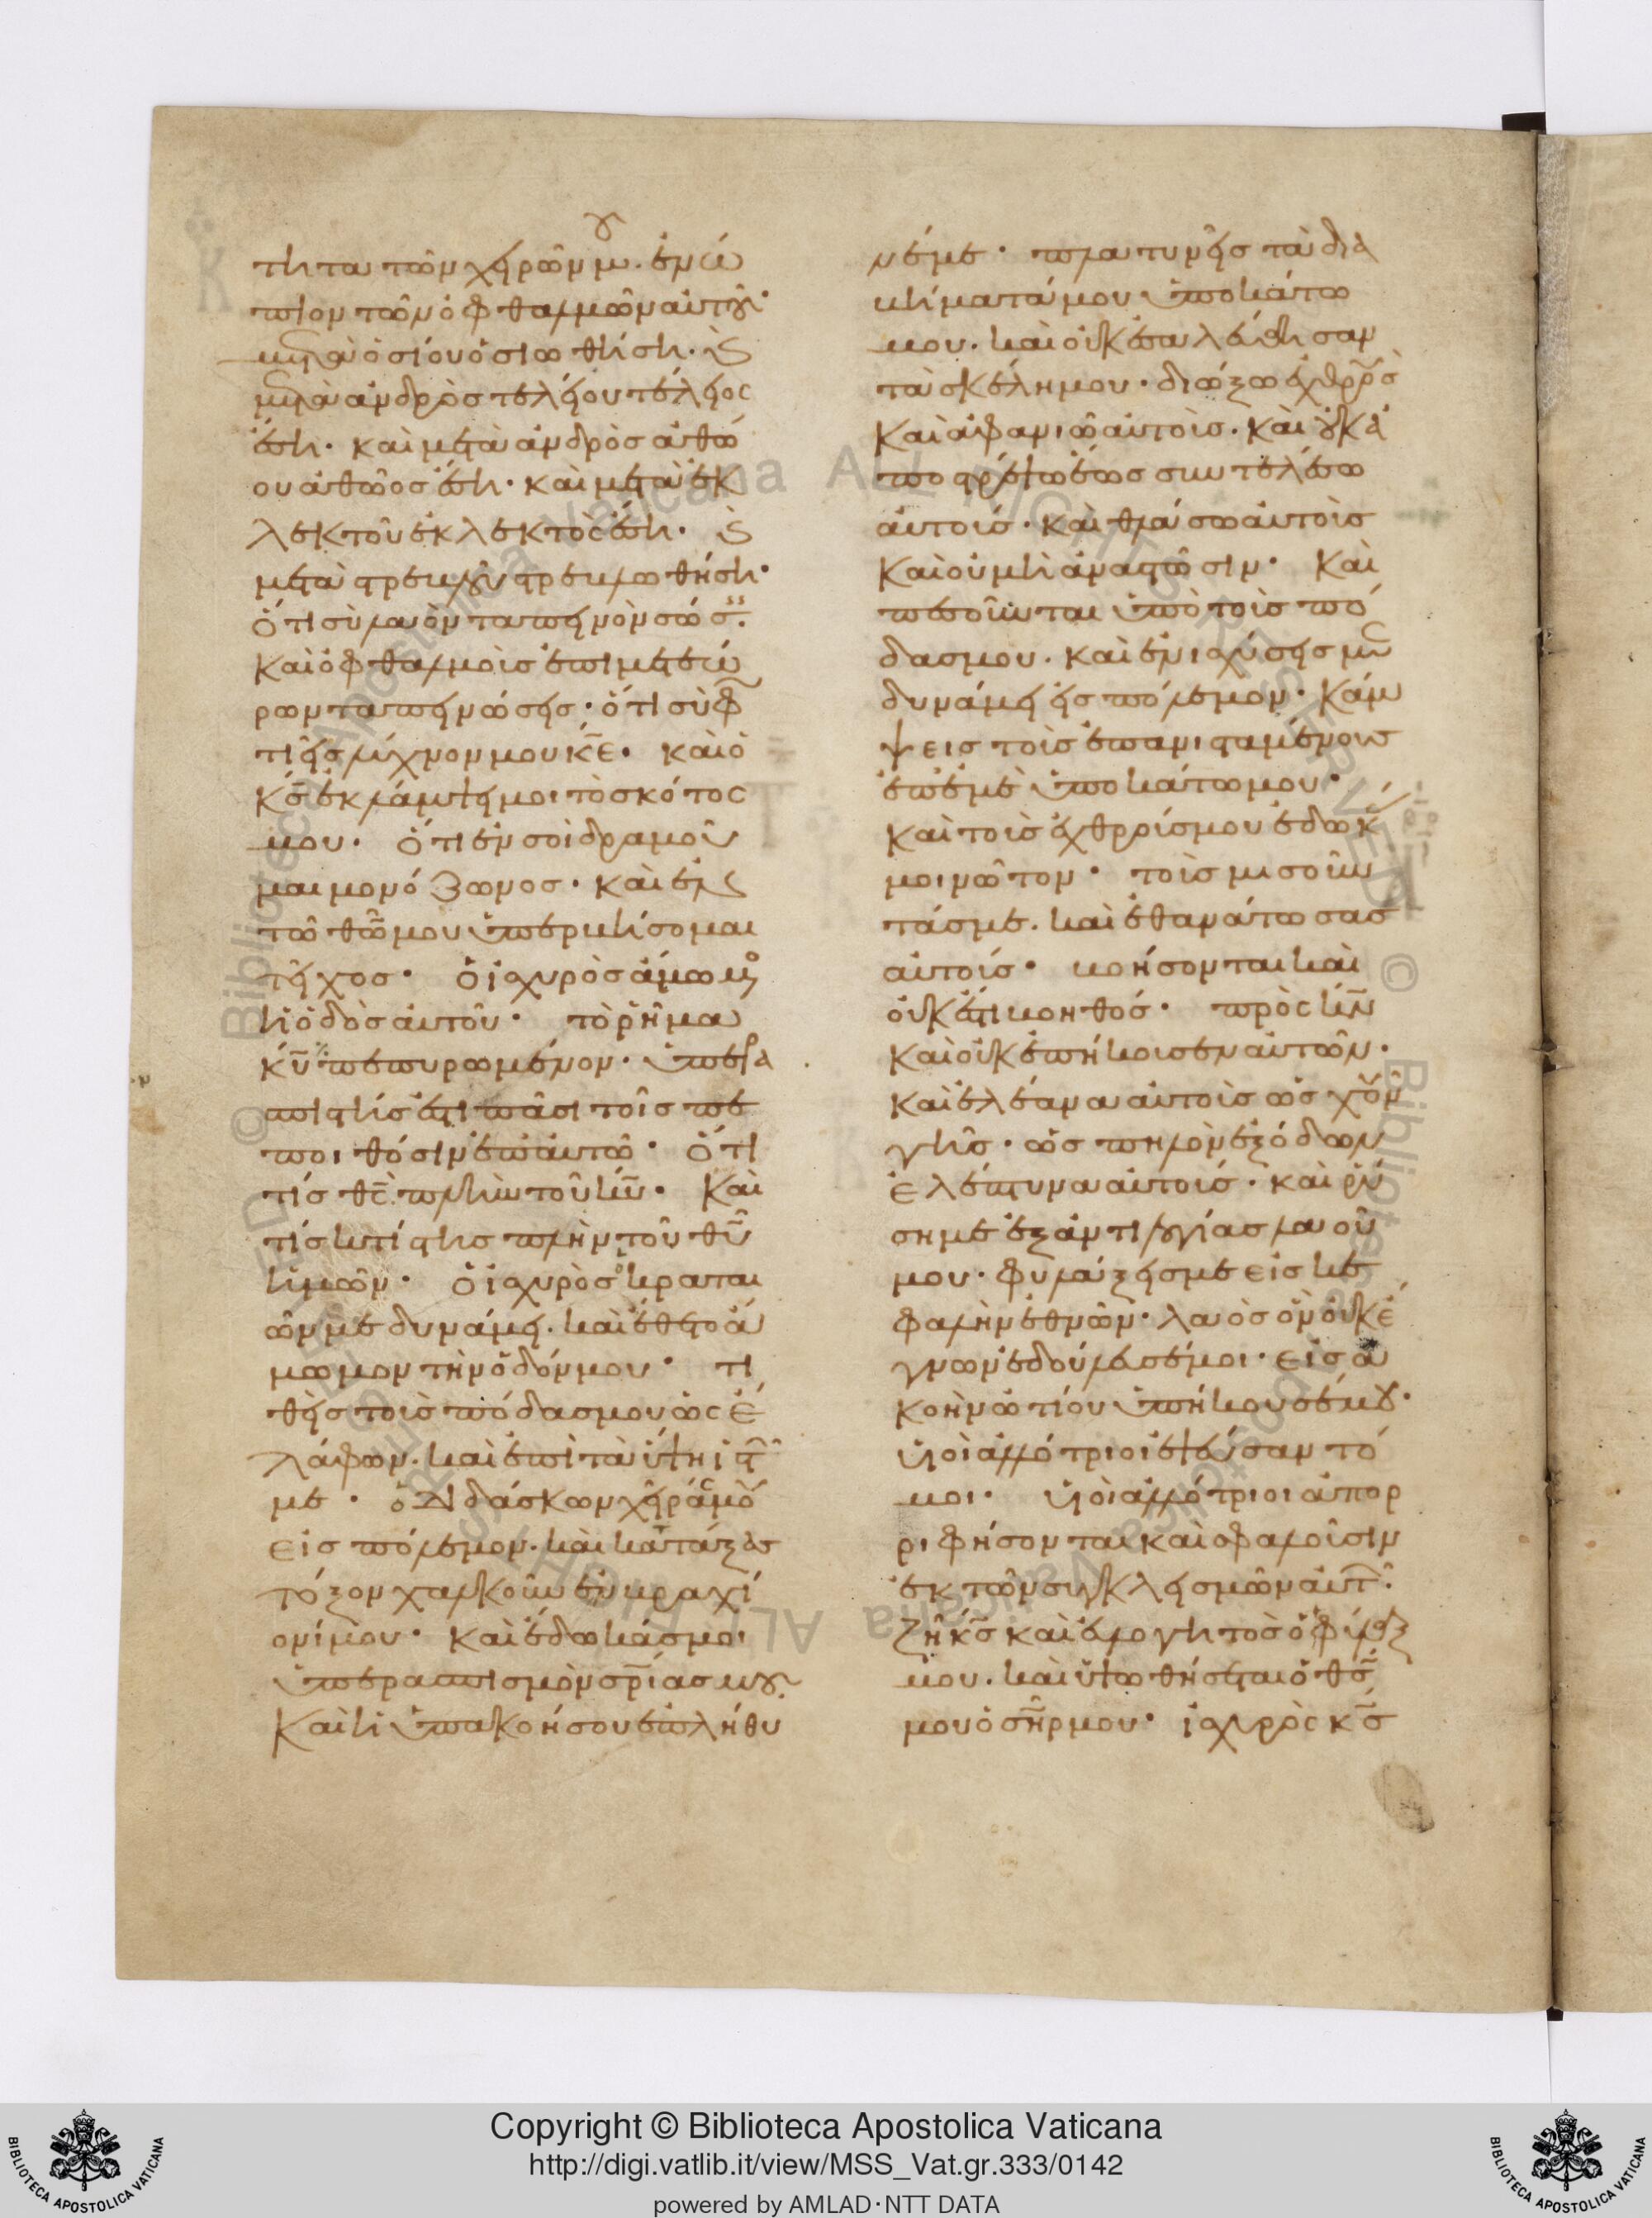 τητα τῶν χειρῶν μου. ἐνώ
πιον τῶν ὀφθαλμῶν αὐτοῦ·
μετὰ ὁσίου ὁσιωθήση. καὶ
μετὰ ἀνδρὸς τελείου τέλειος
ἔση. καὶ μετὰ ἀνδρὸς ἀθώ
ου ἀθῶος ἔση. καὶ μετὰ ἐκ
λεκτοῦ ἐκλεκτὸς ἔση. καὶ
μετὰ στρεβλοῦ στρεβλωθήση·
ὅτι σὺ λαὸν ταπεινὸν σώσεις.
καὶ ὀφθαλμοὺς ἐπὶ μετεώ
ρων ταπεινώσεις· ὅτι σὺ φω
τιεῖς λύχνον μου κε̄. καὶ ὁ
κς̄ ἐκλάμψει μοι τὸ σκότος
μου. ὅτι ἐν σοὶ δραμοῦ
μαι μονόζωνος. καὶ ἐν
τῶ θῶ̄ μου ὑπερβήσομαι
τεῖχος. ὁ ἰσχυρὸς ἄμωμος
ἡ ὁδὸς αὐτοῦ. τὸ ῥῆμα
κῡ πεπυρωμένον. ὑπερα
σπιστής ἐστι πᾶσι τοῖς πε
ποιθόσιν ἐπ' αὐτῶ. ὅτι
τίς θς̄ πλὴν τοῦ κῡ. καὶ
τίς κτίστης πλὴν τοῦ θῡ
ἡμῶν. ὁ ἰσχυρὸς ὁ κραται
ῶν με δυνάμει. καὶ ἔθετο ἄ
μωμον τὴν ὁδόν μου. τι
θεὶς τοὺς πόδας μου ὡς ἐ
λάφων. καὶ ἐπὶ τὰ ὕψη ἱστῶν
με. διδάσκων χεῖράς μου
εἰς πόλεμον. καὶ κατάξας
τόξον χαλκοῦν ἐν βραχί
ονί μου. καὶ ἔδωκάς μοι
ὑπερασπισμὸν σρ̄ίας μου.
καὶ ἡ ὑπακοή σου ἐπλήθυ
νέ με. πλατυνεῖς τὰ δια
βήματά μου ὑποκάτω
μου. καὶ οὐκ ἐσαλεύθησαν
τὰ σκέλη μου. διώξω ἐχθρούς
καὶ ἀφανιῶ αὐτούς. καὶ οὐκ ἀ
ποστρέψω ἕως συντελέσω
αὐτούς. καὶ θλάσω αὐτοὺς
καὶ οὐ μὴ ἀναστῶσιν. καὶ
πεσοῦνται ὑπὸ τοὺς πό
δας μου. καὶ ἐνισχύσεις με
δυνάμει εἰς πόλεμον. κάμ
ψεις τοὺς ἐπανισταμένους
ἐπ' ἐμὲ ὑποκάτω μου.
καὶ τοὺς ἐχθρούς μου ἔδωκάς
μοι νῶτον. τοὺς μισοῦν
τάς με. καὶ ἐθανάτωσας
αὐτούς. βοήσονται καὶ
οὐκ ἔστι βοηθός. πρὸς κν̄
καὶ οὐκ ἐπήκουσεν αὐτῶν.
καὶ ἐλέανα αὐτοὺς ὡς χοῦν
γῆς. ὡς πηλὸν ἐξόδων
ἐλέπτυνα αὐτούς. καὶ ῥύ
ση με ἐξ ἀντιλογίας λαοῦ
μου. φυλάξεις με εἰς κε
φαλὴν ἐθνῶν. λαὸς ὃν οὐκ ἔ
γνων ἐδούλευσέ μοι. εἰς ἀ
κοὴν ὠτίου ὑπήκουσέ μου.
υἱοὶ ἀλλότριοι ἐψεύσαντό
μοι. υἱοὶ ἀλλότριοι ἀπορ
ριφήσονται καὶ σφαλοῦσιν
ἐκ τῶν συγκλεισμῶν αὐτῶν.
ζῆ κς̄ καὶ εὐλογητὸς ὁ φύλαξ
μου. καὶ ὑψωθήσεται ὁ θς̄
μου ὁ σηρ̄ μου. ἰσχυρὸς κς̄
Copyright © Biblioteca Apostolica Vaticana
http://digi.vatlib.it/view/MSS_Vat.gr.333/0142
powered by AMLAD·NTT DATA